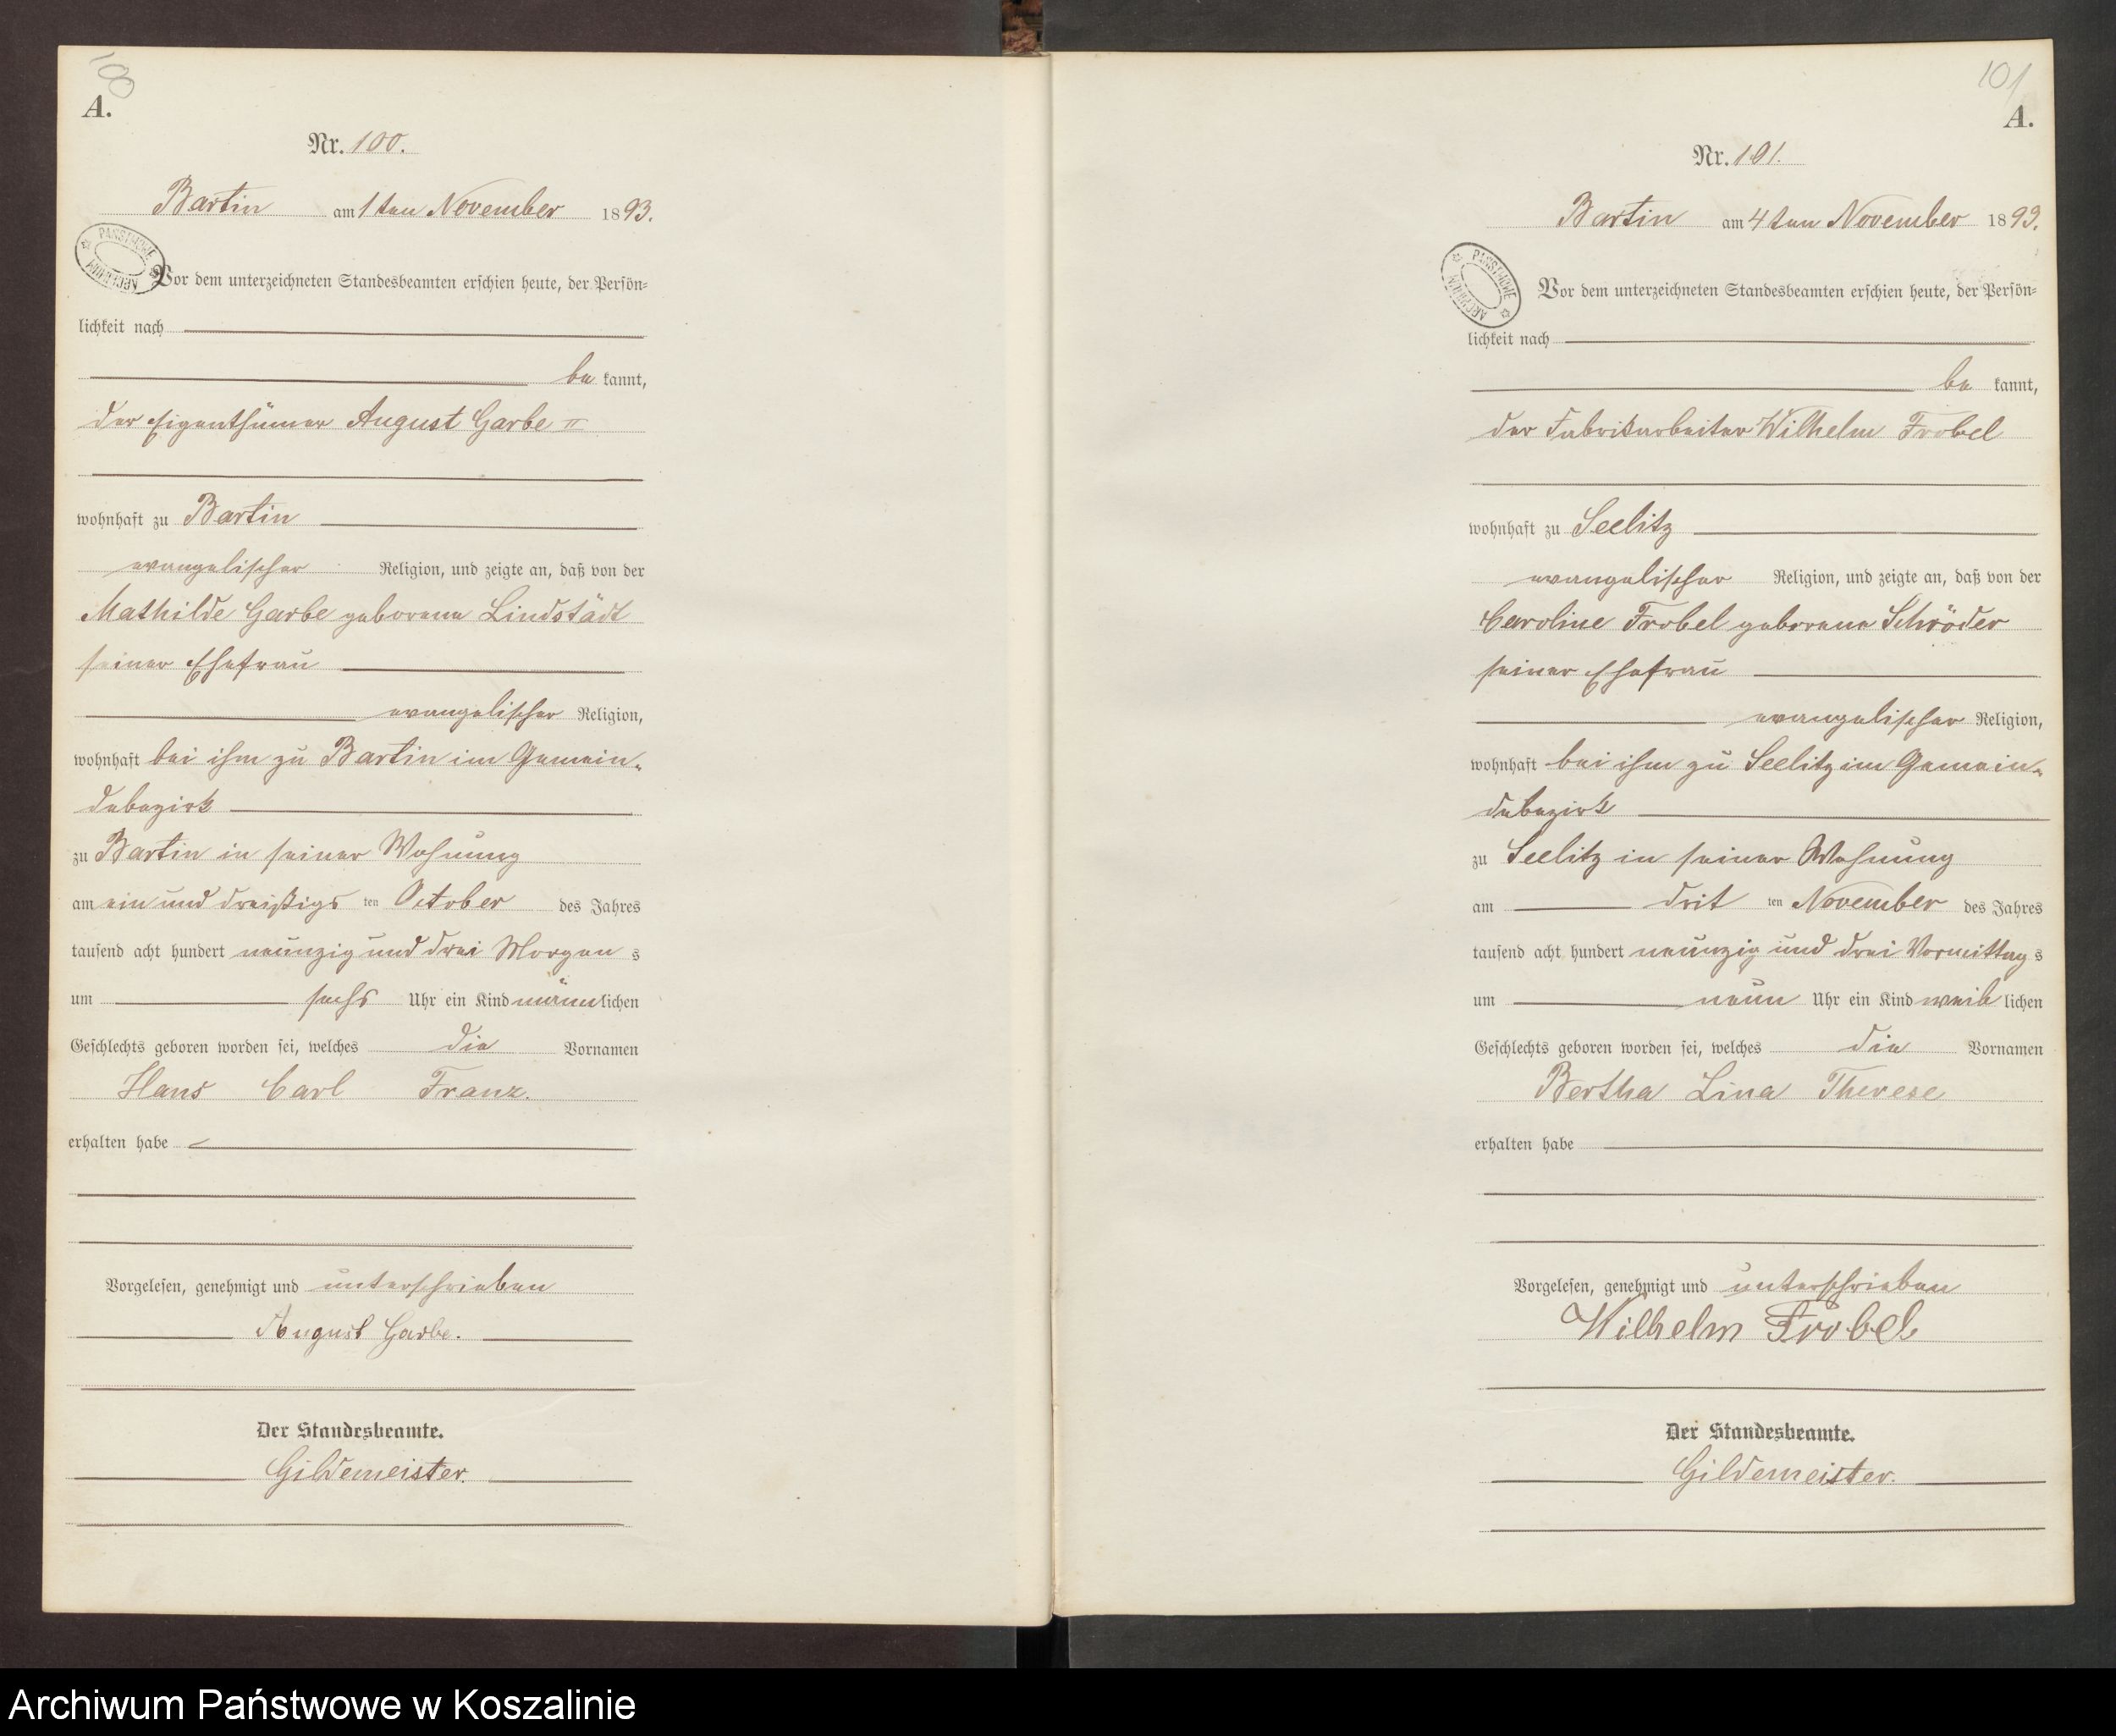 100
A.
Nr. 100.
Bartin am 1ten November 1893.
ARCHIWUM PAŃSTWOWE
Vor dem unterzeichneten Standesbeamten erschien heute, der Persön=
lichkeit nach
be kannt,
der Eigenthümer August Garbe II
wohnhaft zu Bartin
evangelischer Religion, und zeigte an, daß von der
Mathilde Garbe geborene Lindstädt
seiner Ehefrau
evangelischer Religion,
wohnhaft bei ihm zu Bartin im Gemein-
debezirk
zu Bartin in seiner Wohnung
am ein und dreißigs ten October des Jahres
tausend acht hundert neunzig und drei Morgen s
um sechs Uhr ein Kind männlichen
Geschlechts geboren worden sei, welches die Vornamen
Hans Carl Franz.
erhalten habe
Vorgelesen, genehmigt und unterschrieben
August Garbe.
Der Standesbeamte.
Gildemeister.
101
A.
Nr. 101.
Bartin am 4ten November 1893.
ARCHIWUM PAŃSTWOWE
Vor dem unterzeichneten Standesbeamten erschien heute, der Persön=
lichkeit nach
be kannt,
der Fabrikarbeiter Wilhelm Frobel
wohnhaft zu Seelitz
evangelischer Religion, und zeigte an, daß von der
Caroline Frobel geborene Schröder
seiner Ehefrau
evangelischer Religion,
wohnhaft bei ihm zu Seelitz im Gemein-
debezirk
zu Seelitz in seiner Wohnung
am drit ten November des Jahres
tausend acht hundert neunzig und drei Vormittag s
um neun Uhr ein Kind weib lichen
Geschlechts geboren worden sei, welches die Vornamen
Bertha Lina Therese
erhalten habe
Vorgelesen, genehmigt und unterschrieben
Wilhelm Frobel
Der Standesbeamte.
Gildemeister.
Archiwum Państwowe w Koszalinie